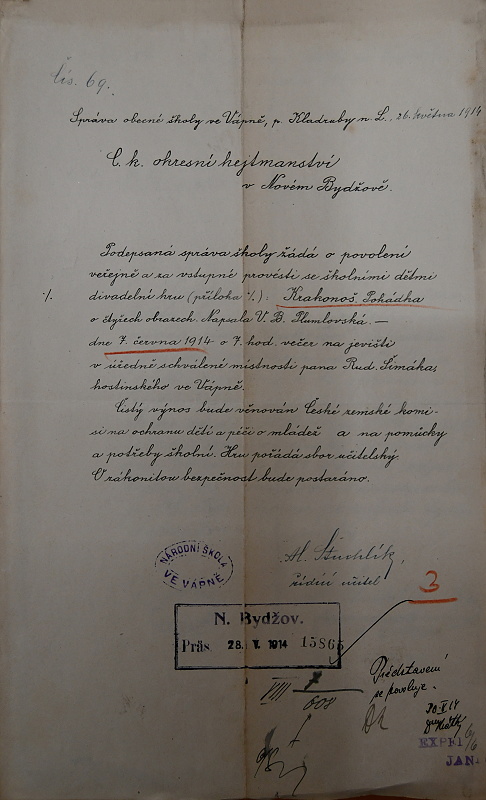 čís. 69.
Správa obecné školy ve Vápně, p. Kladruby n. L., 26. května 1914
C. k. okresní hejtmanství
v Novém Bydžově.
Podepsaná správa školy žádá o povolení
veřejně a za vstupné provésti se školními dětmi
·/. divadelní hru (příloha ·/.): Krakonoš. Pohádka
o čtyřech obrazech. Napsala V. B. Plumlovská. —
dne 7. června 1914 o 7. hod. večer na jevišti
v úředně schválené místnosti pana Rud. Šimáka,
hostinského ve Vápně.
Čistý výnos bude věnován České zemské komi-
si na ochranu dětí a péči o mládež a na pomůcky
a potřeby školní. Hru pořádá sbor učitelský.
O zákonitou bezpečnost bude postaráno.
NÁRODNÍ ŠKOLA
VE VÁPNĚ
Al. Stuchlík,
řídící učitel
3
N. Bydžov.
Präs. 28. V. 1914 15865
VIII
608
Představení
se povoluje.
30 V 14
EXPE
JAN.